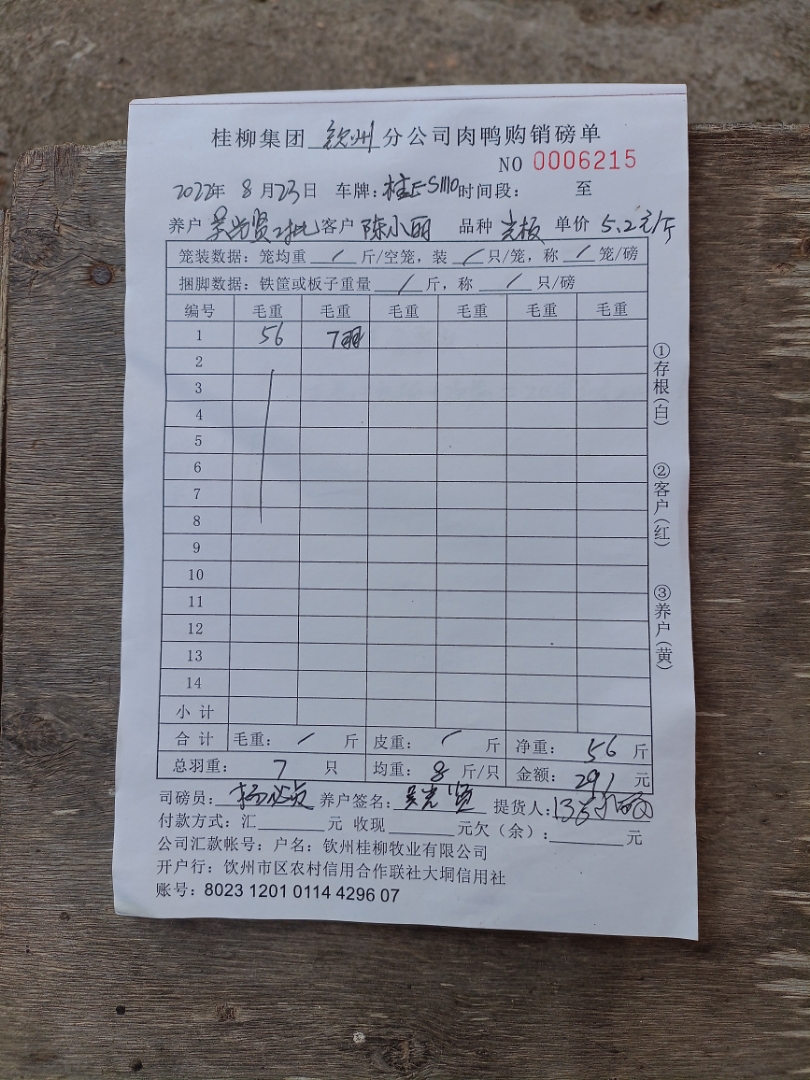 桂柳集团 钦州 分公司肉鸭购销磅单
NO 0006215
2022年 8月23日 车牌: 桂E·S1110 时间段: 至
养户 吴光贤2批 客户 陈小丽 品种 光板 单价 5.2元/斤
笼装数据: 笼均重 / 斤/空笼, 装 / 只/笼, 称 / 笼/磅
捆脚数据: 铁筐或板子重量 / 斤, 称 / 只/磅
编号 毛重 毛重 毛重 毛重 毛重 毛重
1 56 7羽
2
3
4
5
6
7
8
9
10
11
12
13
14
小计
合计 毛重: / 斤 皮重: / 斤 净重: 56 斤
总羽重: 7 只 均重: 8 斤/只 金额: 291 元
司磅员: 养户签名: 吴光贤 提货人:
付款方式: 汇 元 收现 元欠(余): 元
公司汇款帐号: 户名: 钦州桂柳牧业有限公司
开户行: 钦州市区农村信用合作联社大垌信用社
账号: 8023 1201 0114 4296 07
①存根(白)
②客户(红)
③养户(黄)